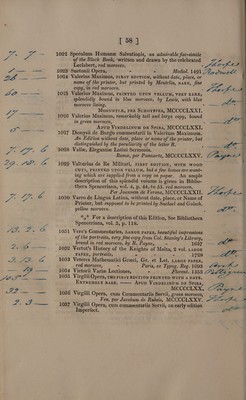 [ 58 ]
7. 7. 1022 Speculum Humanæ Salvationis, an admirable fac-simile
of the Block Book, written and drawn by the celebrated
Lachabert, red morocco.
1023 Suetonii Opera, Mediol. 1491
26 1024 Valerius Maximus, FIRST EDITION, without date, place, or
name of the printer, but printed by Mentelin, RARE, fine
copy, in red morocco.
1025 Valerius Maximus, PRINTED UPON VELLUM, VERY RARE,
splendidly bound in blue morocco, by Lewis, with blue
morocco lining.
MOGUNTIÆ, PER SCHOYFFER, MCCCCLXXI.
17 1026 Valerius Maximus, remarkably tall and large copy, bound
in green morocco,
APUD VINDELINUM DE SPIRA, MCCCCLXXI.
5 1027 Dionysii de Burgo commentarii in Valerium Maximum.
An Edition without date, place, or name of the printer, but
distinguished by the peculiarity of the letter R.
7. 17. 6 1028 Vallæ, Elegantiæ Latini Sermonis.
Romæ, per Pannartz, MCCCCLXXV.
29. 18. 6 1029 Valturius de Re Militari, FIRST EDITION, WITH WOOD
CUTS, PRINTED UPON VELLUM, but a few leaves are want-
ing which are supplied from a copy on paper. An ample
description of this splendid volume is given in Biblio-
theca Spenceriana, vol. 4, p. 44, to 53, red morocco,
Per Joannem de Verona, MCCCCLXXII.
7. 17. 6 1030 Varro de Lingua Latina, without date, place, or Name of
Printer, but supposed to be printed by Sachsel and Golsch.
yellow morocco.
*** For a description of this Edition, See Bibliotheca
Spenceriana, vol. 3, p. 118.
13. 2. 6 1031 Vere's Commentaries, LARGE PAPER, beautiful impressions
of the portraits, very fine copy from Col. Stanley's Library,
bound in red morocco, by R. Payne, 1657
1032 Vertot's History of the Knights of Malta, 2 vol. LARGE
PAPER, portraits, 1728
3. 13. 6 1033 Veteres Mathematici Græci, Gr. et Lat. LARGE PAPER,
red morocco, Paris, ex Typog. Reg. 1693
1034 Victorii Variæ Lectiones, Florent. 1553
1035 Virgilii Opera, THE FIRST EDITION PRINTED WITH A DATE.
EXTREMELY RARE. APUD VINDELINUM DE SPIRA,
MCCCCLXX.
1036 Virgilii Opera, cum Commentariis Servii, green morocco,
Ven. per Jacobum de Rubeis, MCCCCLXXV.
2. 3 1037 Virgilii Opera, cum commentariis Servii, an early edition
Imperfect.